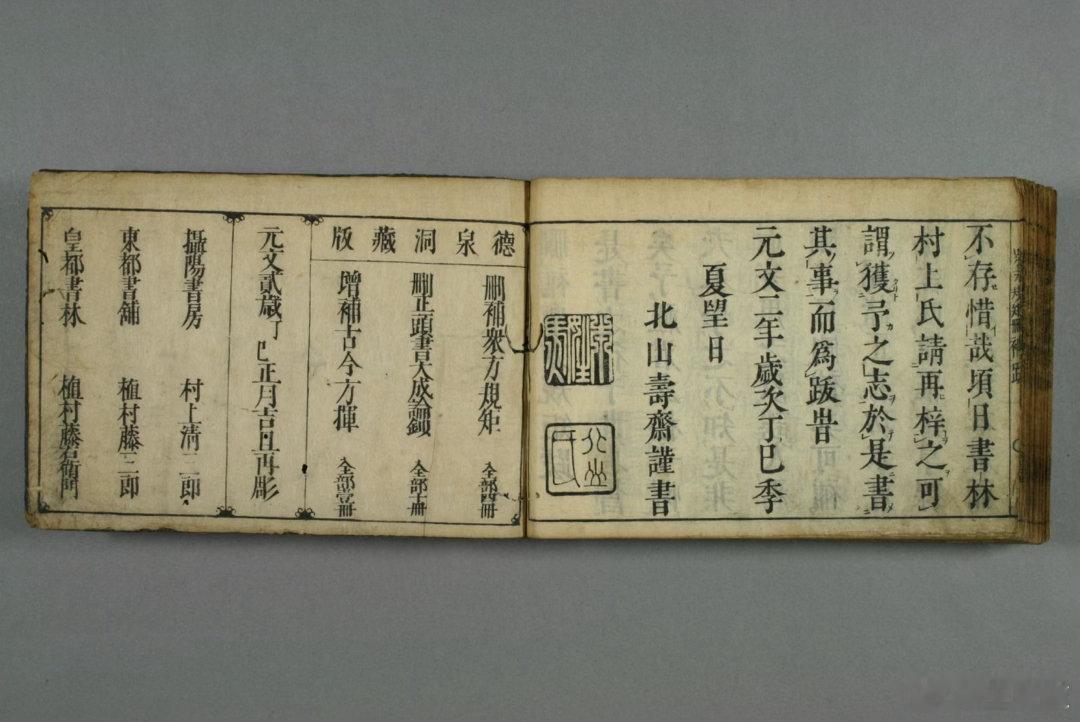 不存惜哉頃日書林
村上氏請再梓之可
謂獲予之志於是書
其事而為跋旹
元文二年歲次丁巳季
夏望日
北山壽齋謹書
德泉洞藏版
刪補衆方規矩 全部四冊
刪正頭書大成論 全部七冊
增補古今方揮 全部壹冊
元文貳歲丁巳正月吉旦再彫
攝陽書房 村上清三郎
東都書舖 植村藤三郎
皇都書林 植村藤右衛門